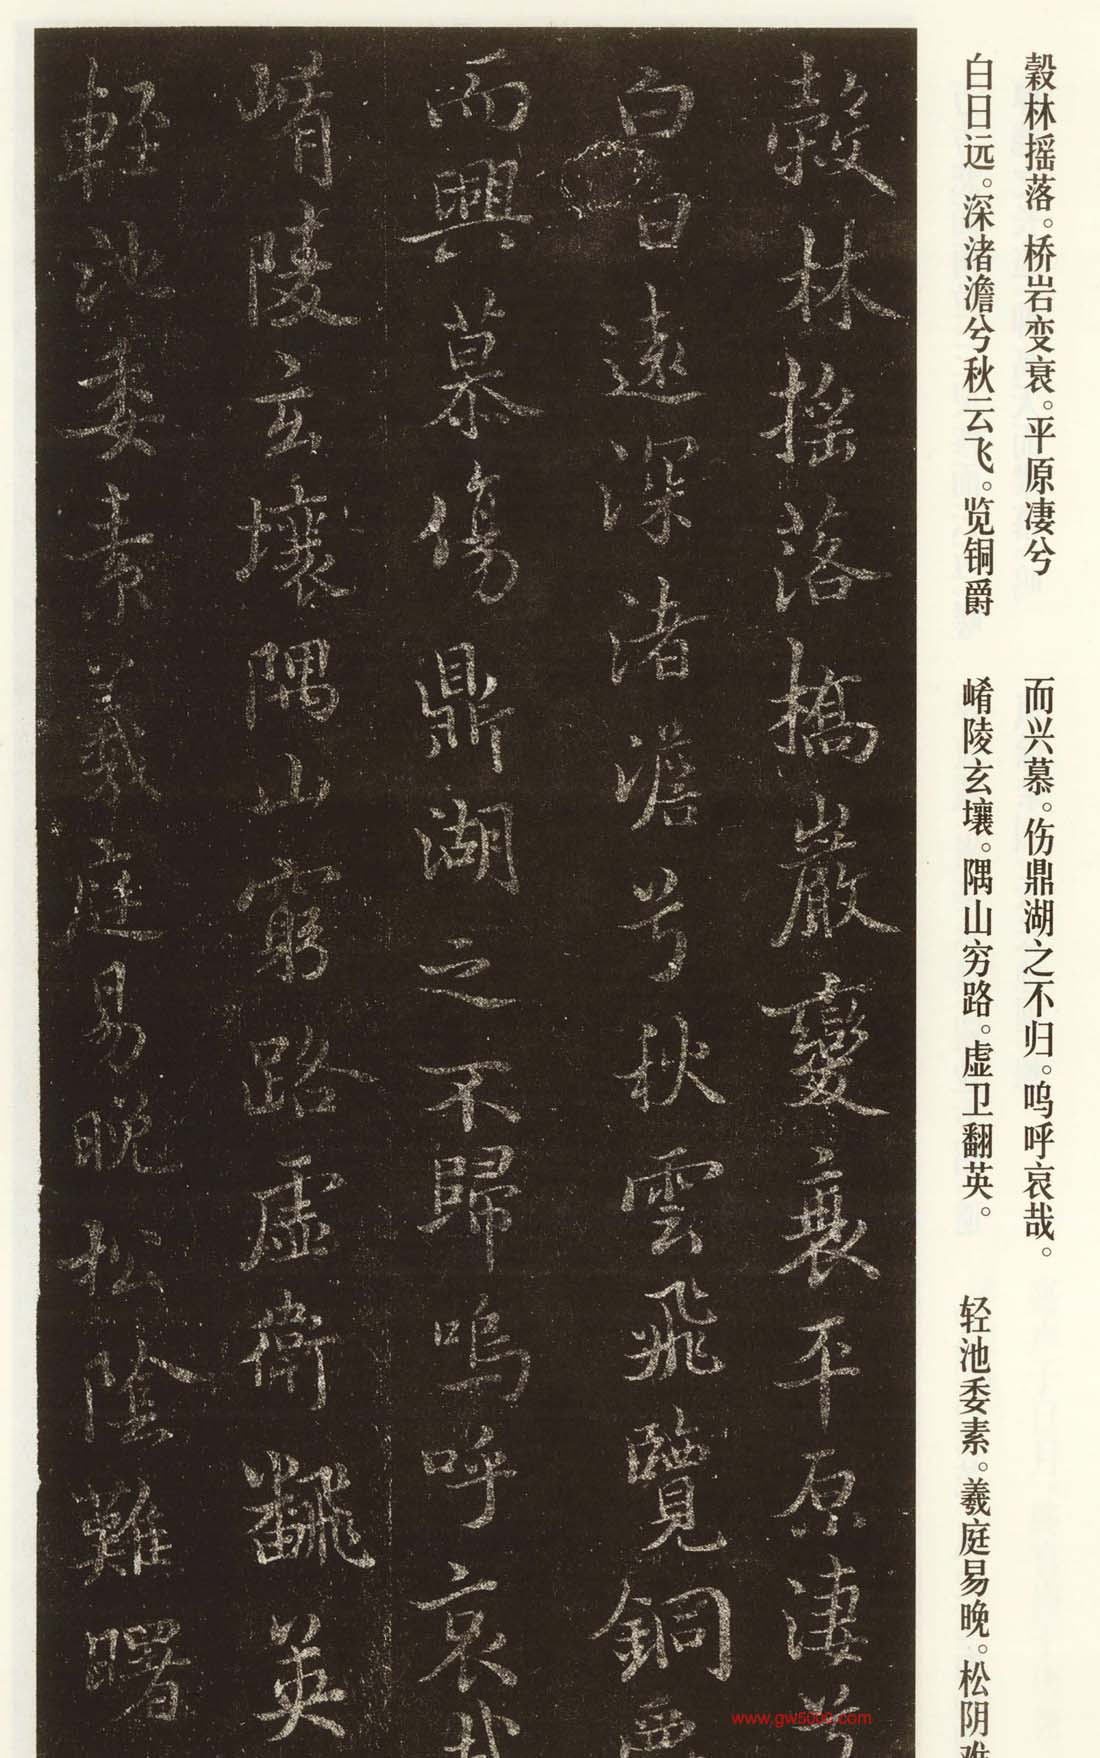 穀林摇落。桥岩变衰。平原凄兮
白日远。深渚澹兮秋云飞。览铜爵
而兴慕。伤鼎湖之不归。呜呼哀哉。
崤陵玄壤。隅山穷路。虚卫翻英。
轻池委素。羲庭易晚。松阴难
穀林摇落橋巖變衰平原淒兮
白日遠深渚澹兮秋雲飛覽銅
而興慕傷鼎湖之不歸嗚呼哀哉
崤陵玄壤隅山窮路虛衛翻英
輕池委素羲庭易晚松陰難曙
www.gw5000.com